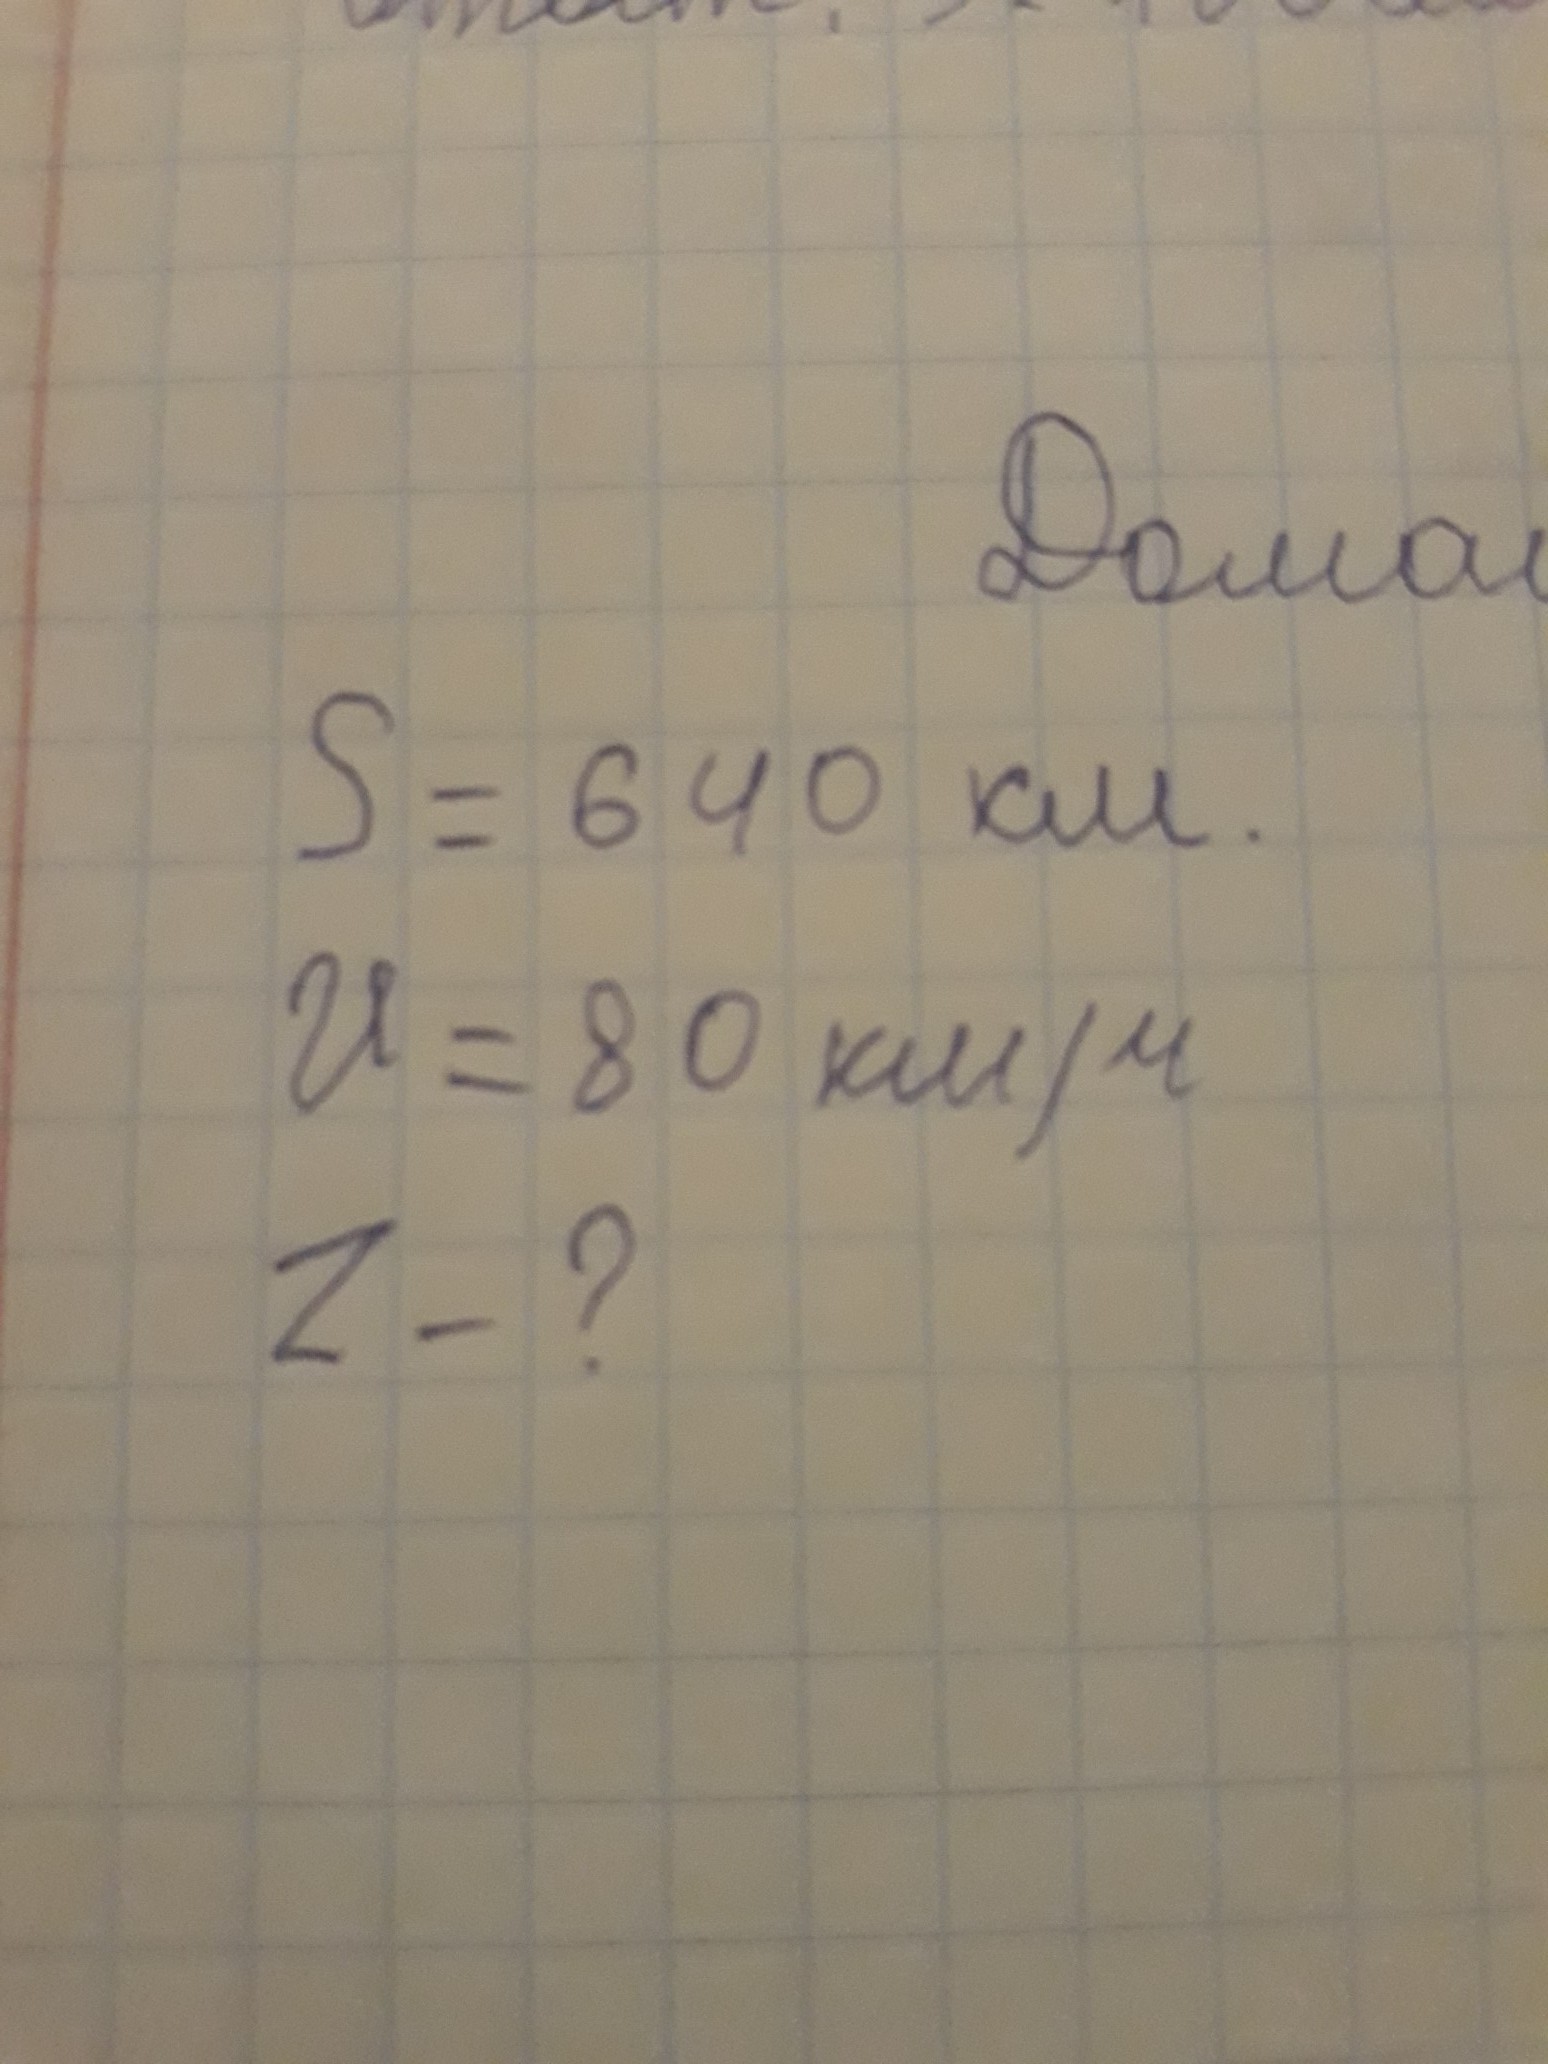 Дома
S = 640 км.
V = 80 км/ч
Z - ?